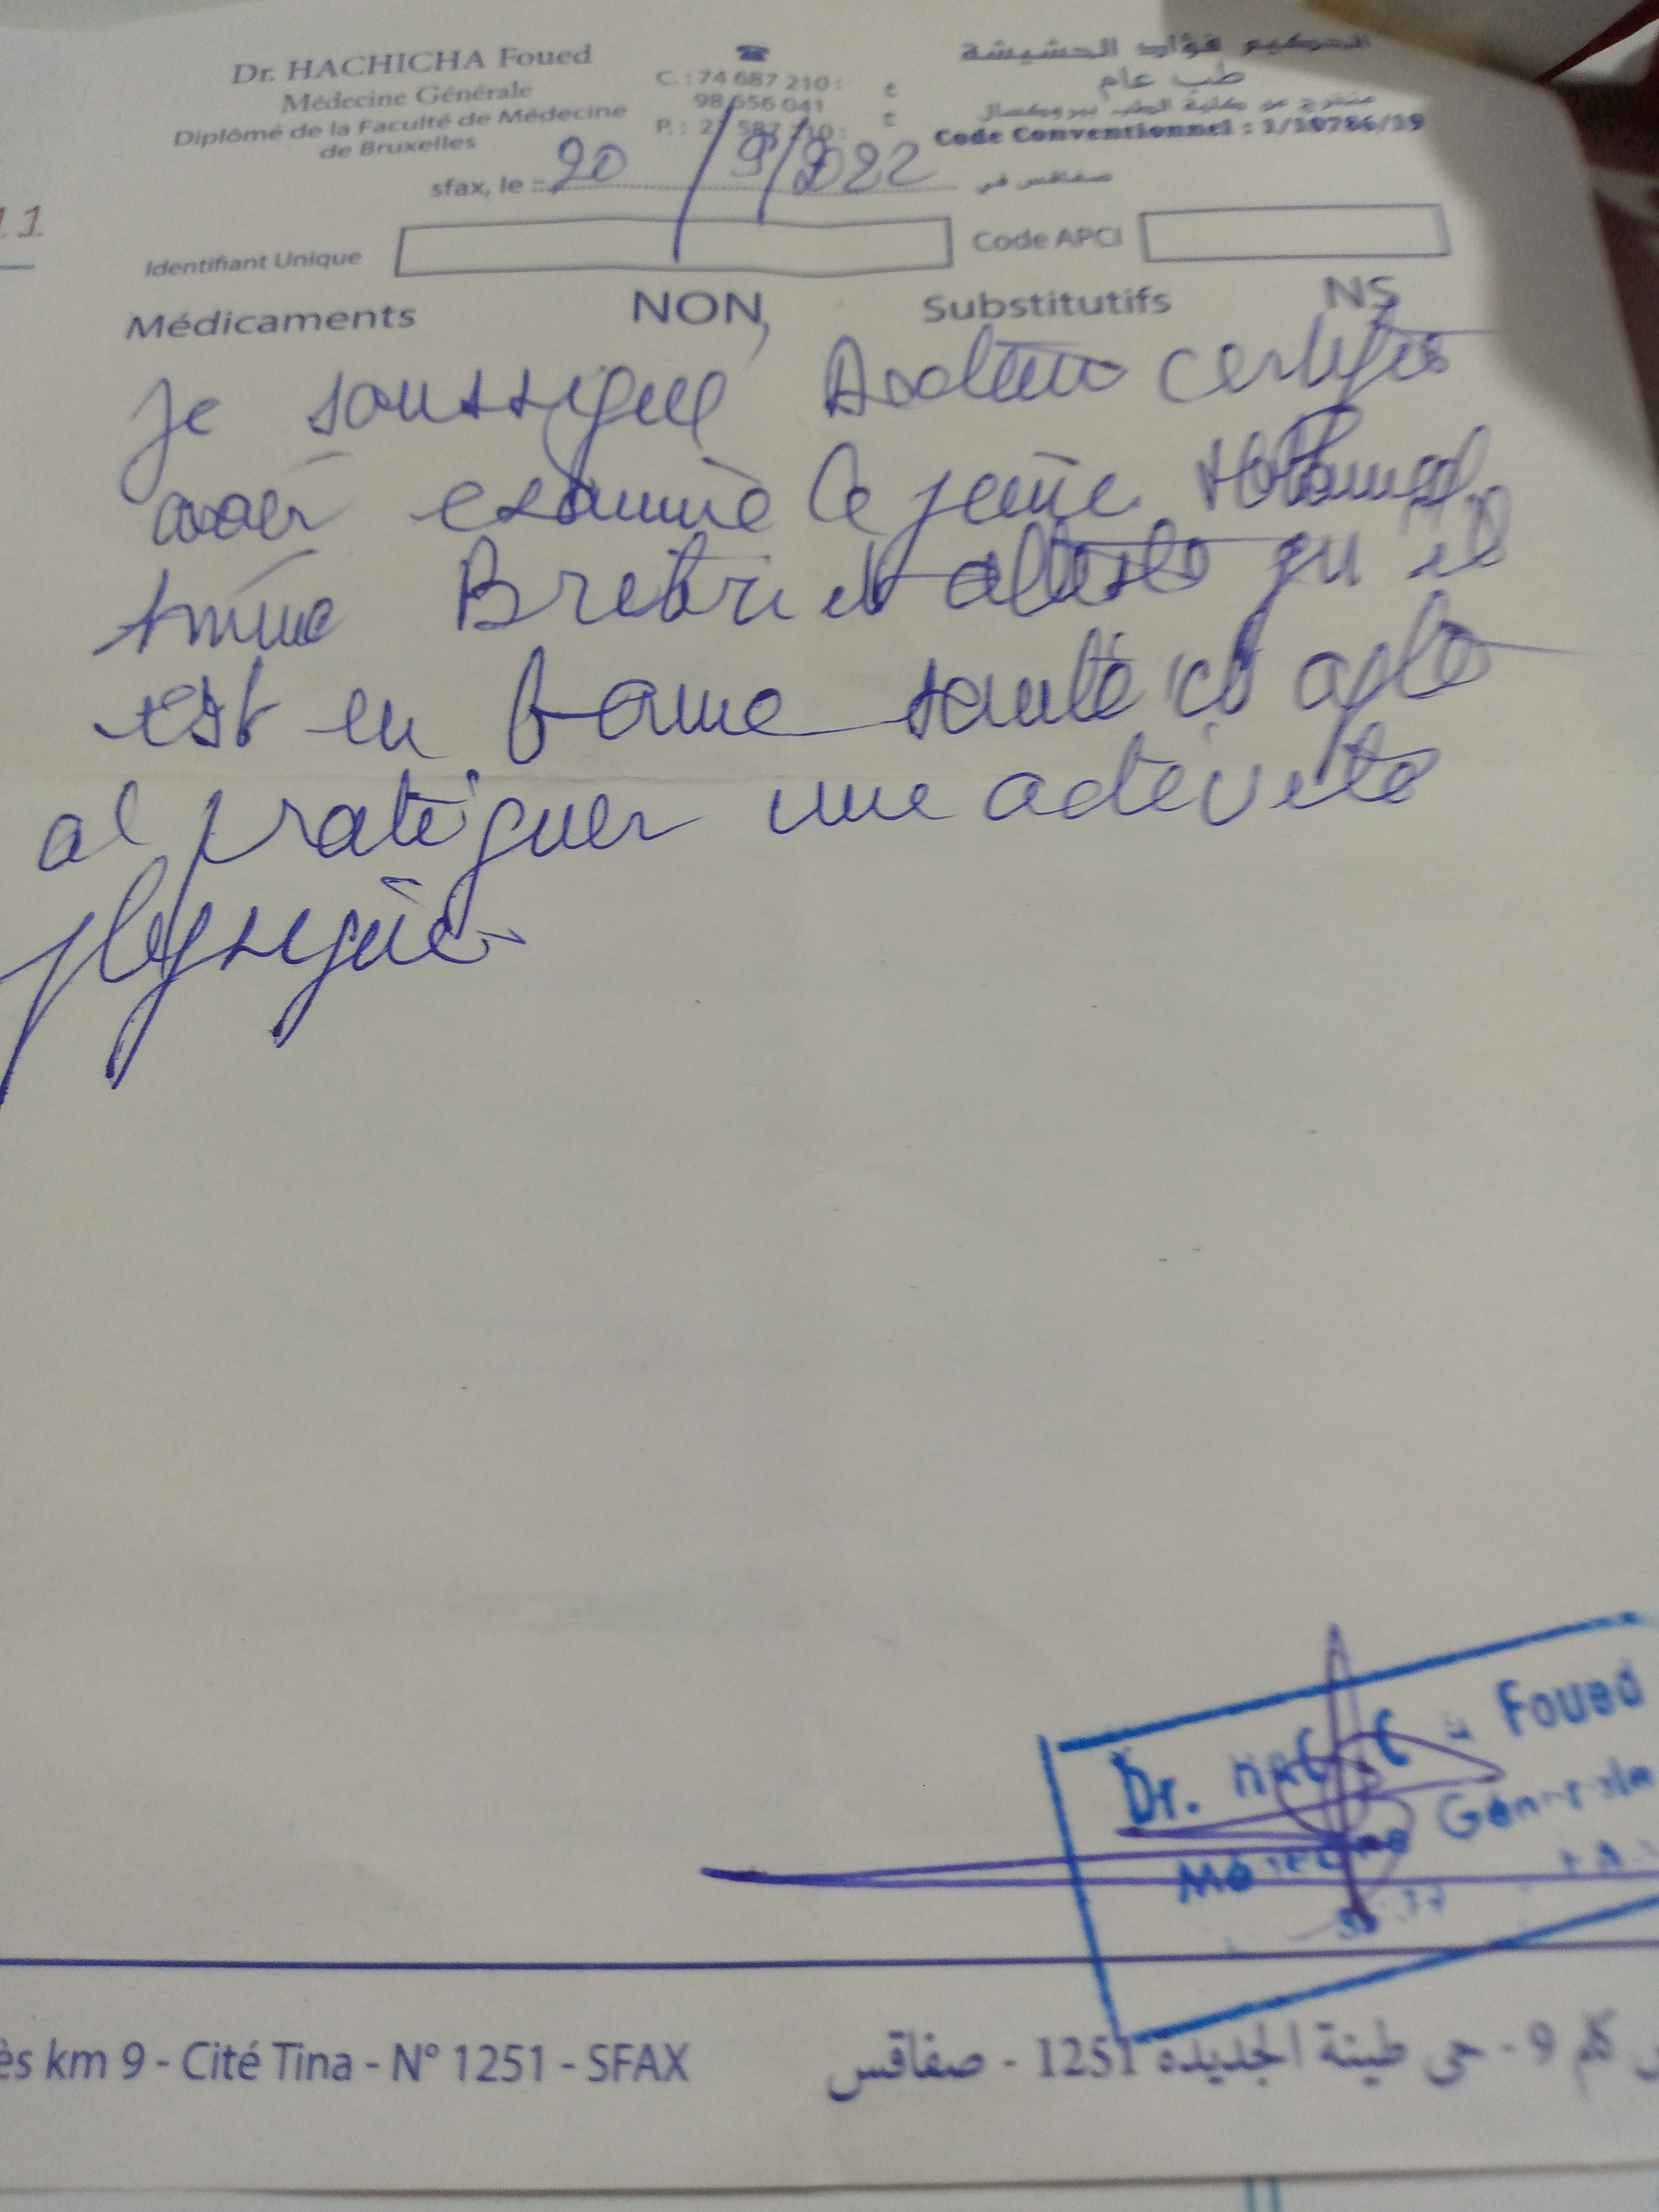 Dr. HACHICHA Foued
Médecine Générale
Diplômé de la Faculté de Médecine
de Bruxelles
☎
C. : 74 687 210 : ع
98 656 041
P. : 27 587 210 : ع
الحكيم فؤاد الحشيشة
طب عام
متخرج عن كلية الطب ببروكسال
Code Conventionnel : 1/10786/19
sfax, le = 20 / 9 / 2022 صفاقس في
11
Identifiant Unique Code APCI
Médicaments NON Substitutifs NS
Je soussigné Docteur certifie
avoir examiné le jeune Mohamed
Amine et atteste qu'il
est en bonne santé et apte
à pratiquer une activité
physique.
Dr. Foued
Générale
ès km 9 - Cité Tina - N° 1251 - SFAX
كلم 9 - حي طينة الجديدة 1251 - صفاقس